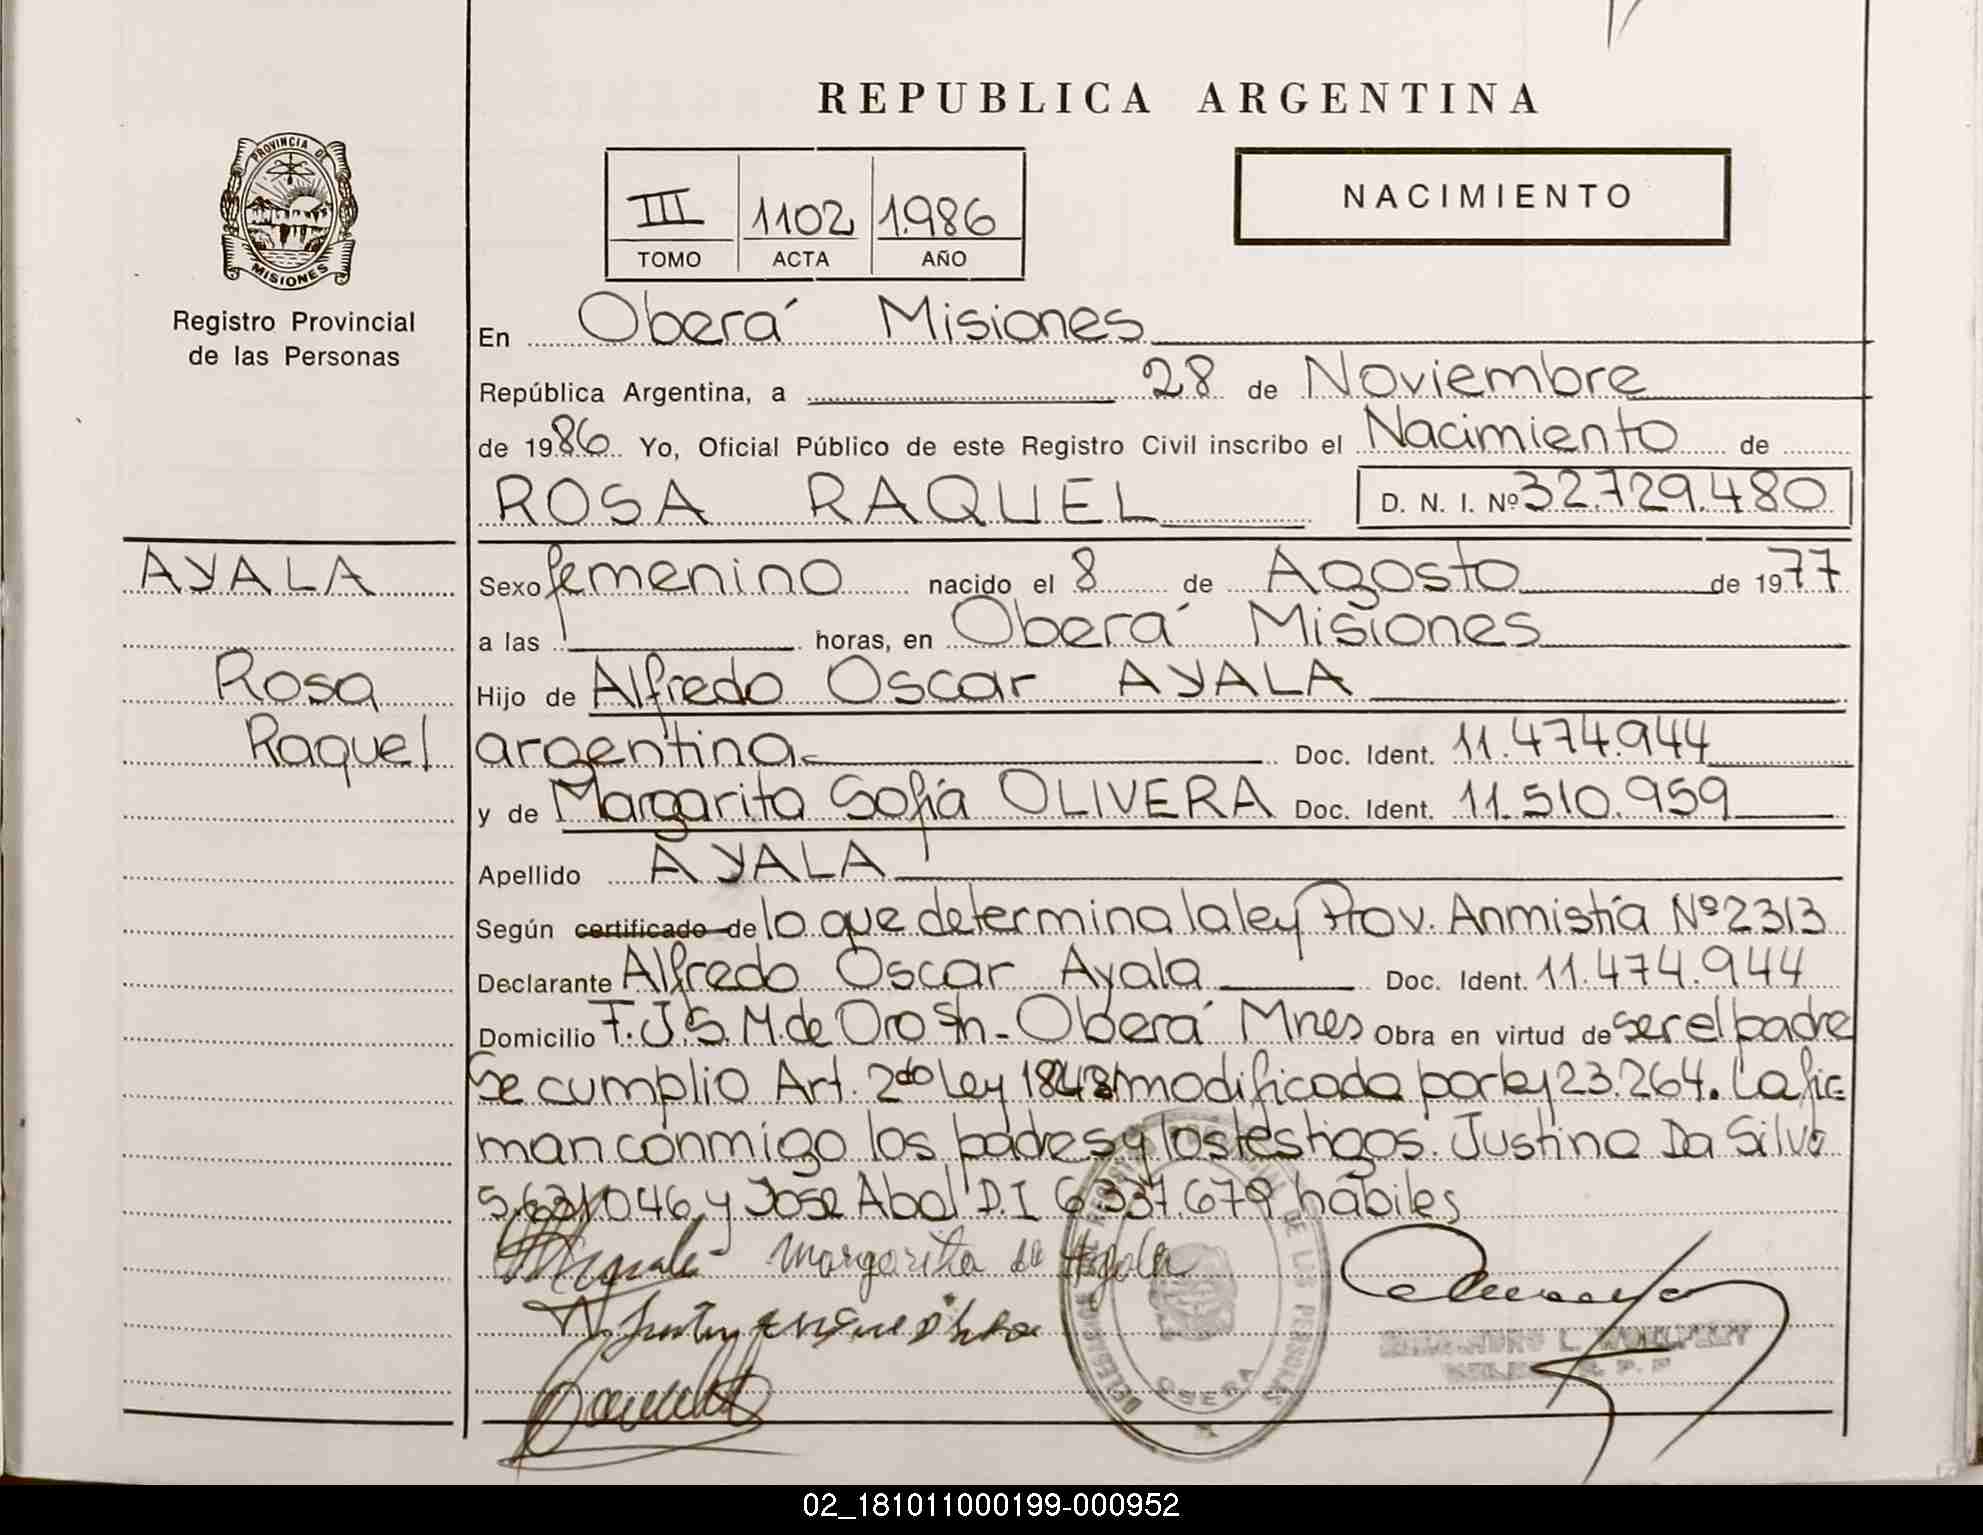 REPUBLICA ARGENTINA
PROVINCIA DE
MISIONES
Registro Provincial
de las Personas
III 1102 1.986
TOMO ACTA AÑO
NACIMIENTO
En Oberá Misiones
República Argentina, a 28 de Noviembre
de 1986 Yo, Oficial Público de este Registro Civil inscribo el Nacimiento de
ROSA RAQUEL D. N. I. Nº 32.729.480
AYALA
Rosa
Raquel
Sexo femenino nacido el 8 de Agosto de 1977
a las horas, en Oberá Misiones
Hijo de Alfredo Oscar AYALA
argentina Doc. Ident. 11.474.944
y de Margarita Sofía OLIVERA Doc. Ident. 11.510.959
Apellido AYALA
Según certificado de lo que determina la ley Prov. Anmistía Nº 2313
Declarante Alfredo Oscar Ayala Doc. Ident. 11.474.944
Domicilio F.J.S.M. de Oro Sn - Oberá Mnes Obra en virtud de ser el padre
Se cumplio Art. 2do Ley modificada por ley 23.264. La fir=
man conmigo los padres y los testigos. Justino Da Silva
y José Abol D.I 6.337.679 hábiles
Margarita de Ayala
DE LAS PERSONAS
OBERA
02_181011000199-000952